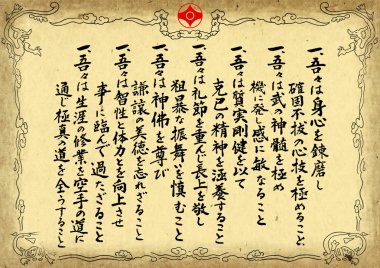 一、吾々は身心を錬磨し
確固不拔の心技を極めること
一、吾々は武の神髄を極め
機に発し感に敏なること
一、吾々は質実剛健を以て
克己の精神を涵養すること
一、吾々は礼節を重んじ長上を敬し
粗暴な振舞を慎むこと
一、吾々は神佛を尊び
謙譲の美徳を忘れざること
一、吾々は智性と体力とを向上させ
事に臨んで過たざること
一、吾々は生涯の修業を空手の道に
通じ極真の道を全うすること